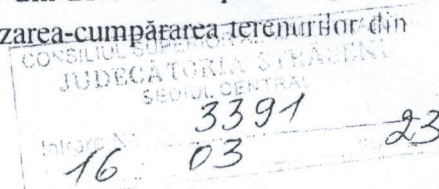 din
vânzarea-cumpărarea terenurilor din
CONSILIUL SUPERIOR
JUDECĂTORIA STRĂȘENI
SEDIUL CENTRAL
Intrare Nr. 3391
16 03 23